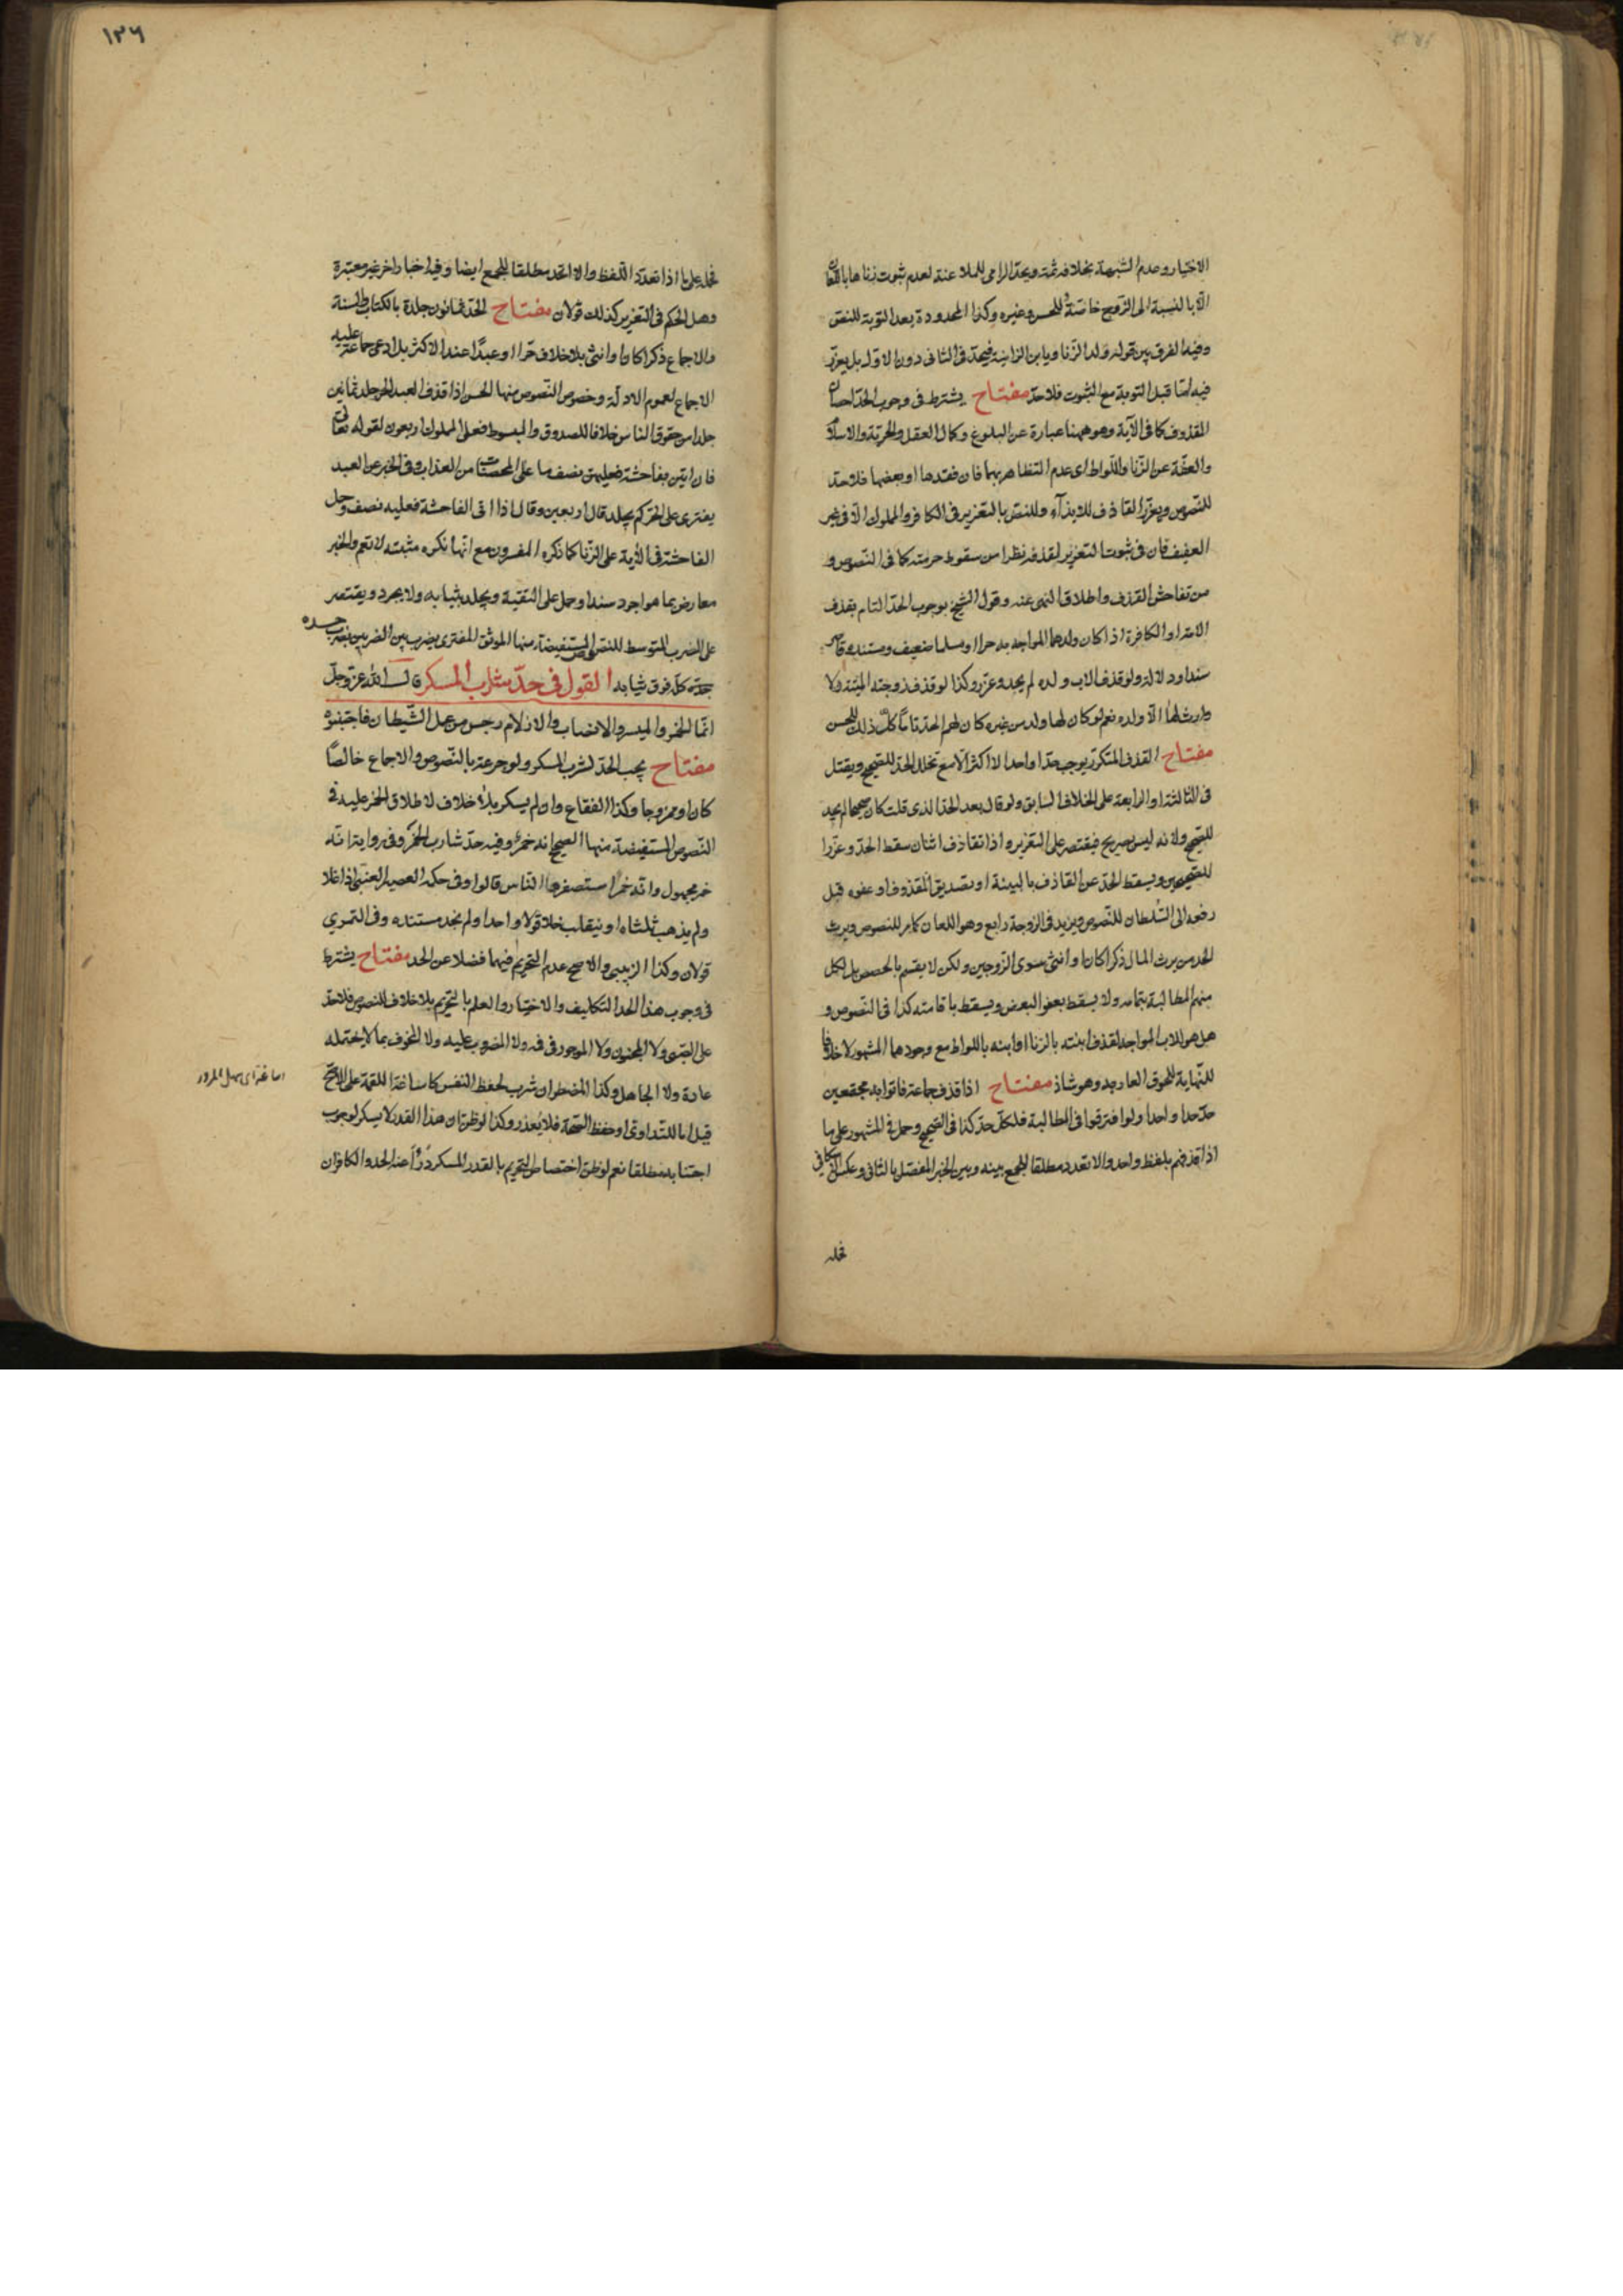 الاختيار وعدم الشبهة بخلافه ثمة ويحد الرامي للملاعنة لعدم ثبوت زناها باللعان
الا بالنسبة الى الزوج خاصة وللحسن وغيره وكذا المحدودة بعد التوبة للنص
وفيه الفرق بين قوله ولد الزنا ويا بن الزانية فيحد في الثاني دون الاول بل يعزر
فيه اما قبل التوبة مع الثبوت فلا حد مفتاح يشترط في وجوب الحد احصان
المقذوف كما في الآية وهو ههنا عبارة عن البلوغ وكمال العقل والحرية والاسلام
والعفة عن الزنا واللواط اى عدم التظاهر بهما فان فقدها او بعضها فلا حد
للنصوص ويعزر القاذف للايذاء وللنص بالتعزير في الكافر والمملوك الا في غير
العفيف فان في ثبوت التعزير لقذفه نظرا من سقوط حرمته كما في النصوص و
من تفاحش القذف واطلاق النهى عنه وقول الشيخ بوجوب الحد التام بقذف
الامة او الكافرة اذا كان ولدها المواجه به حرا او مسلما ضعيف ومستنده قاصر
سندا ودلالة ولو قذف الاب ولده لم يحد وعزر وكذا لو قذف زوجته الميتة ولا
وارث لها الا ولده نعم لو كان لها ولد من غيره كان لهم الحد تاما كل ذلك للحسن
مفتاح القذف المتكرر يوجب حدا واحدا لا اكثر الا مع تخلل الحد للصحيح ويقتل
في الثالثة او الرابعة على الخلاف السابق ولو قال بعد الحد الذى قلت كان صحيحا لم يحد
للصحيح ولانه ليس بصريح فيقتصر على التعزير واذا تقاذف اثنان سقط الحد وعزرا
للصحيحين ويسقط الحد عن القاذف بالبينة او تصديق المقذوف او عفوه قبل
رفعه الى السلطان للنصوص ويزيد في الزوجة رابع وهو اللعان كما مر للنصوص ويرث
الحد من يرث المال ذكرا كان او انثى سوى الزوجين ولكن لا يقسم بالحصص بل لكل
منهم المطالبة بتمامه ولا يسقط بعفو البعض ويسقط باقامته كذا في النصوص و
هل هو للاب المواجه لقذف ابنته بالزنا او ابنه باللواط مع وجودهما المشهور لا خلافا
للنهاية للحوق العار به وهو شاذ مفتاح اذا قذف جماعة فاتوا به مجتمعين
حد حدا واحدا ولو افترقوا في المطالبة فلكل حد كذا في الصحيح وحمل في المشهور على ما
اذا قذفهم بلفظ واحد والا تعدد مطلقا للجمع بينه وبين الخبر المفصل بالثاني وعكس الاسكافي
فحمله
١٢٦
فحمله على ما اذا تعدد اللفظ والا اتحد مطلقا للجمع ايضا وفيه اخبار اخر غير معتبرة
وهل الحكم في التعزير كذلك قولان مفتاح الحد ثمانون جلدة بالكتاب والسنة
والاجماع ذكرا كان او انثى بلا خلاف حرا او عبدا عند الاكثر بل ادعى جماعة عليه
الاجماع لعموم الادلة وخصوص النصوص منها الحسن اذا قذف العبد الحر جلد ثمانين
جلد من حقوق الناس خلافا للصدوق والمبسوط فعلى المملوك اربعون لقوله تعالى
فان اتين بفاحشة فعليهن نصف ما على المحصنات من العذاب وفي الخبر عن العبد
يفترى على الحر كم يجلد قال اربعين وقال اذا اتى الفاحشة فعليه نصف وحمل
الفاحشة في الآية على الزنا كما ذكره المفسرون مع انها نكرة مثبتة لا تعم والخبر
معارض بما هو اجود سندا وحمل على التقية ويجلد بثيابه ولا يجرد ويقتصر
على الضرب المتوسط للنصوص المستفيضة منها الموثق المفترى يضرب بين الضربين يضرب جسده
كله فوق ثيابه القول في حد شارب المسكر قال الله عز وجل
انما الخمر والميسر والانصاب والازلام رجس من عمل الشيطان فاجتنبوه
مفتاح يجب الحد لشرب المسكر ولو جرعة بالنصوص والاجماع خالصا
كان او ممزوجا وكذا الفقاع وان لم يسكر بلا خلاف لاطلاق الخمر عليه في
النصوص المستفيضة منها الصحيح انه خمر وفيه حد شارب الخمر وفي رواية انه
خمر مجهول وانه خمر استصغرها الناس قالوا وفي حكمه العصير العنبى اذا غلا
ولم يذهب ثلثاه او ينقلب خلا قولا واحدا ولم نجد مستنده وفي التمرى
قولان وكذا الزبيبى والاصح عدم التحريم فيهما فضلا عن الحد مفتاح يشترط
في وجوب هذا الحد التكليف والاختيار والعلم بالتحريم بلا خلاف للنصوص فلا حد
على الصبى ولا المجنون ولا الموجور في فيه ولا المضروب عليه ولا المخوف بما لا يحتمله
عادة ولا الجاهل وكذا المضطر ان شرب لحفظ النفس كاساغة اللقمة على الاصح
قيل اما للتداوى او حفظ الصحة فلا يعذر وكذا لو ظن ان هذا القدر لا يسكر لوجوب
اجتنابه مطلقا نعم لو ظن اختصاص التحريم بالقدر المسكر درأ عنه الحد والكافر ان